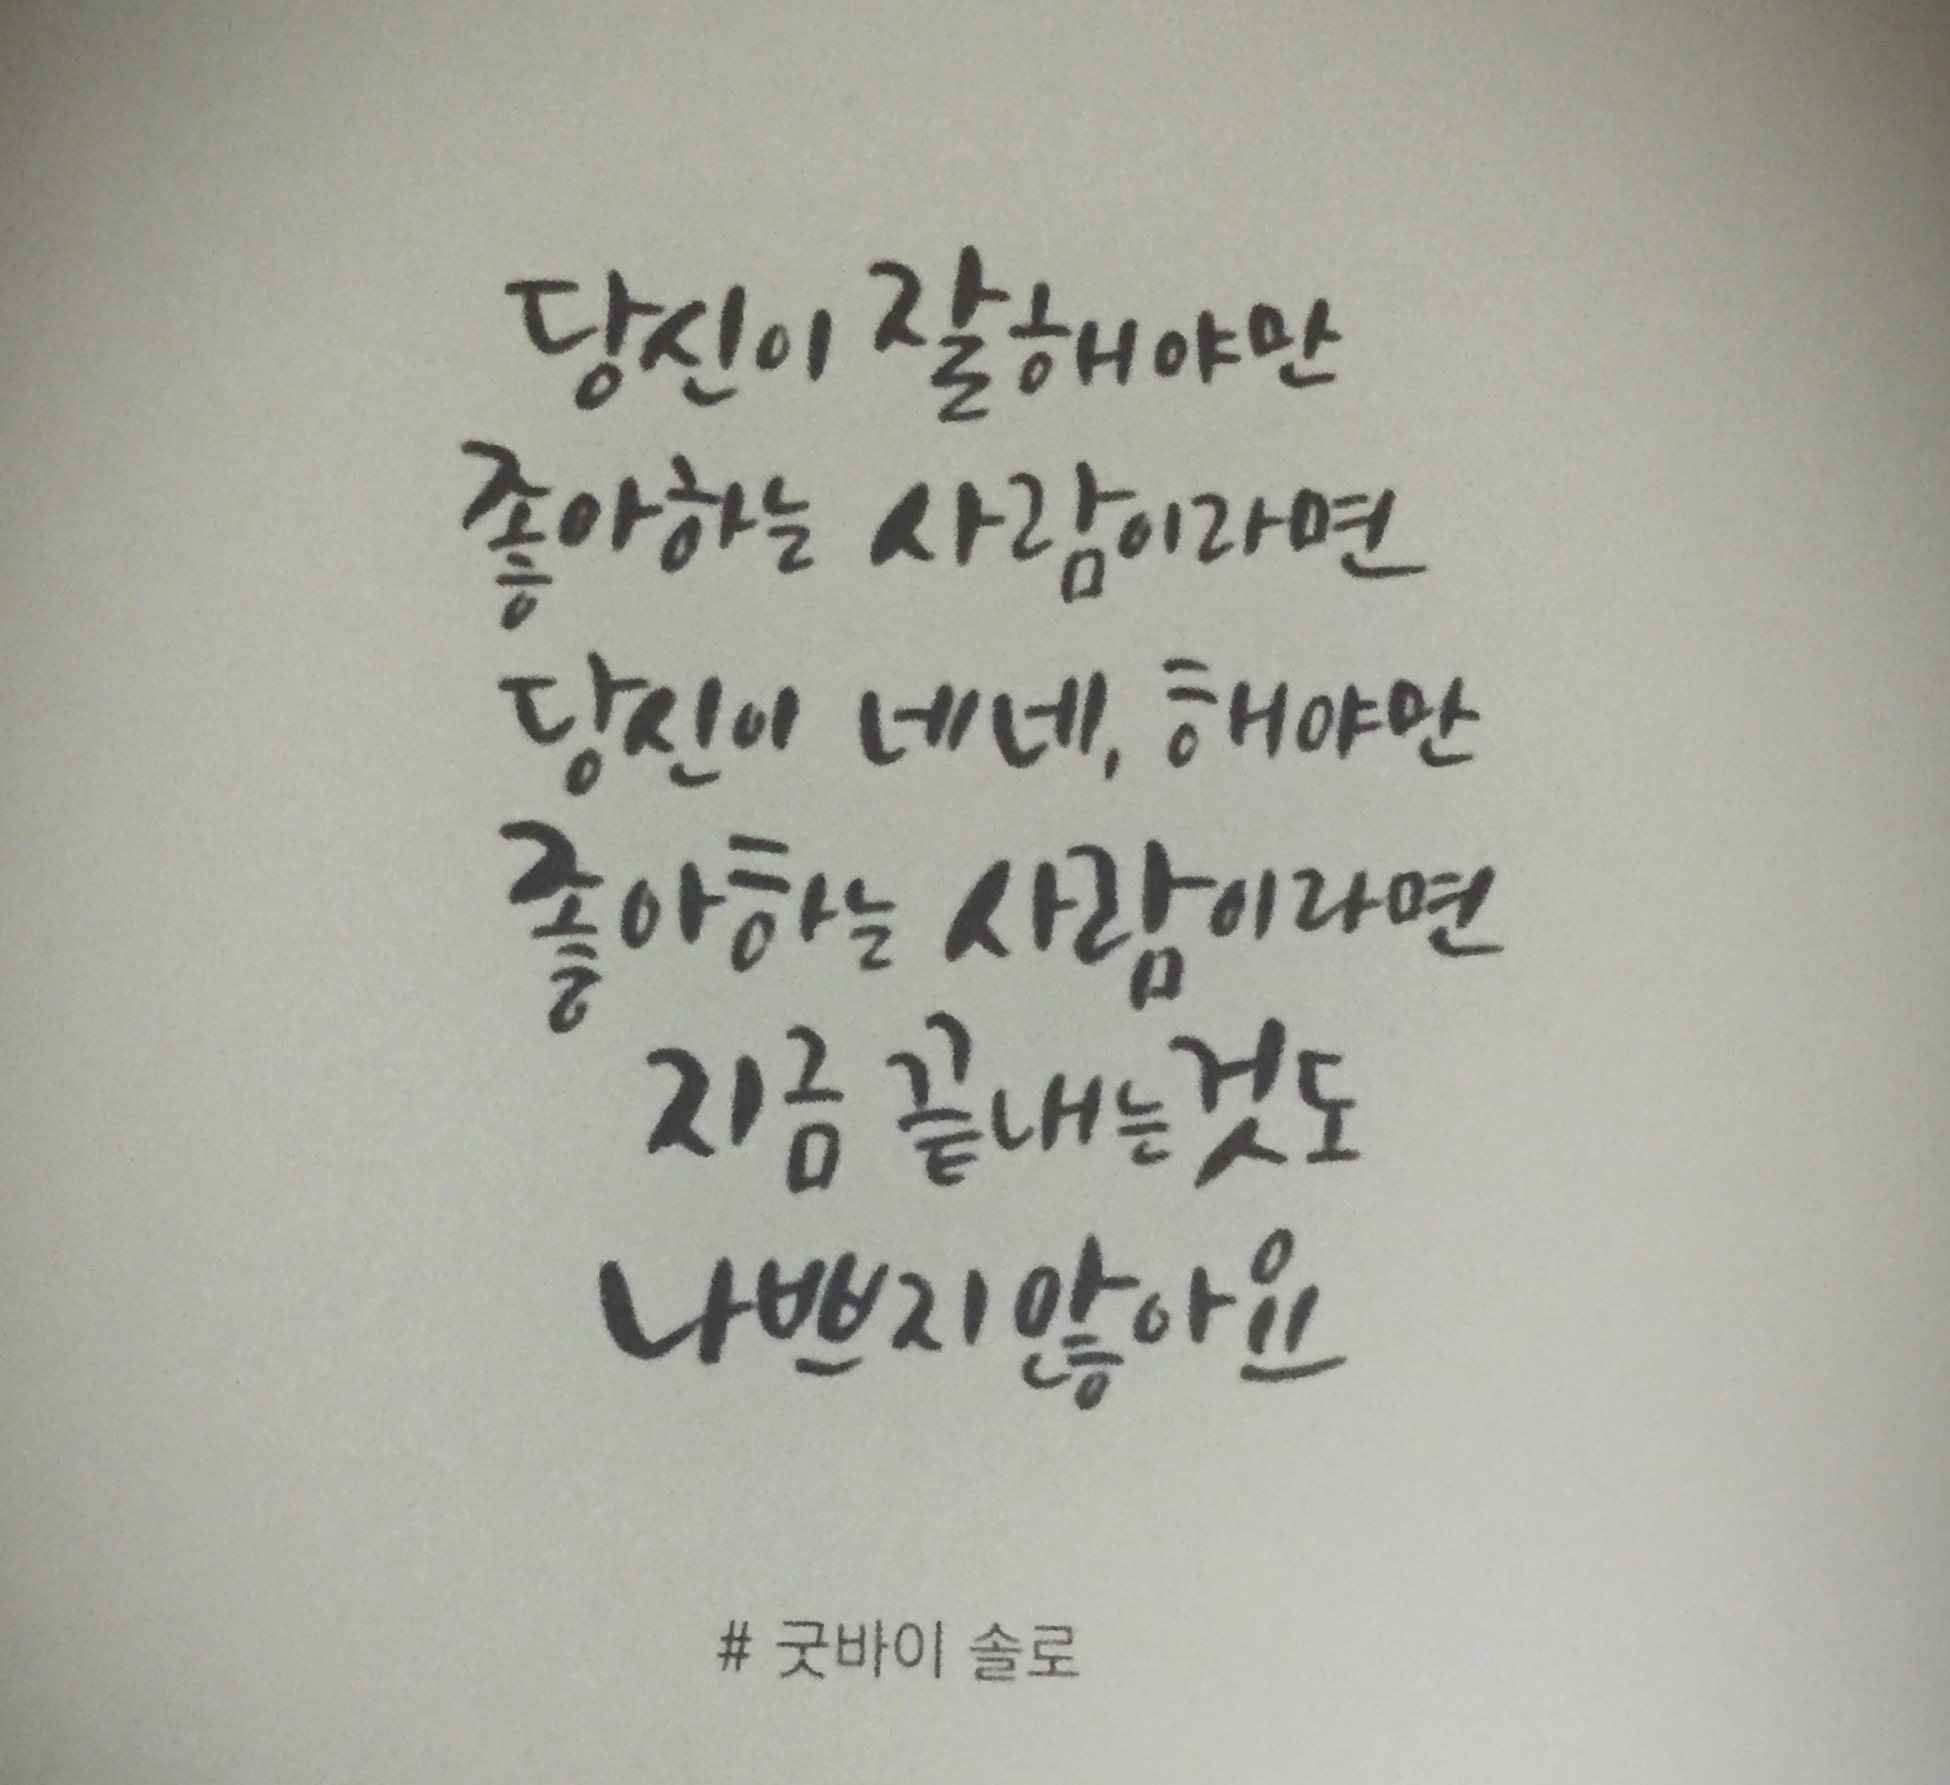 당신이 잘해야만
좋아하는 사람이라면
당신이 네네, 해야만
좋아하는 사람이라면
지금 끝내는것도
나쁘지 않아요
# 굿바이 솔로